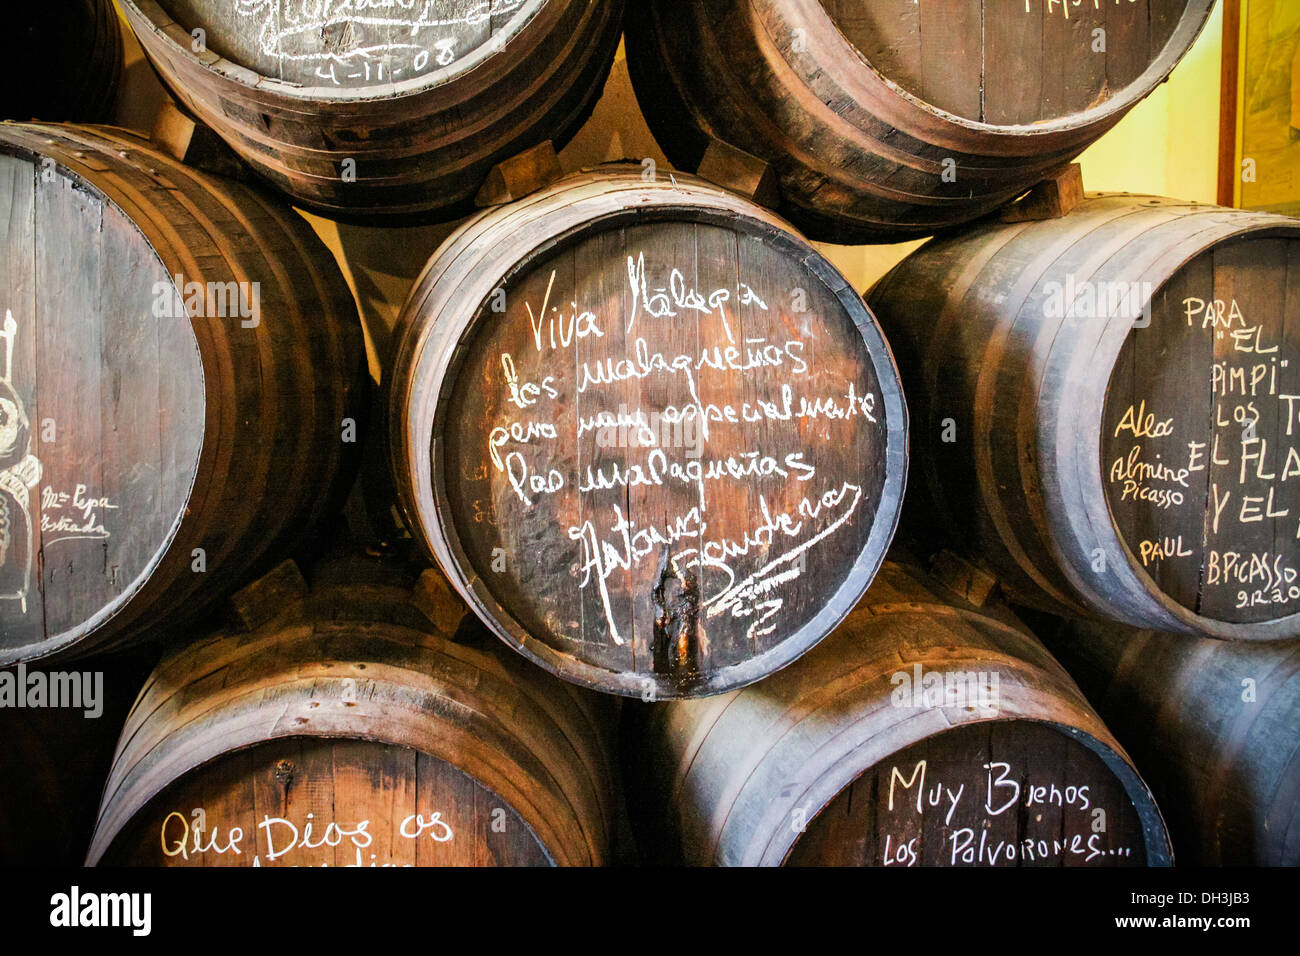 4-11-08
Viva Málaga
los malagueños
pero muy especialmente
las malagueñas
Antonio
Banderas
Mª Pepa
Estrada
PARA
"EL
PiMPi"
LOS
EL FLA
Y EL
Alex
Almine
Picasso
PAUL
B. PiCASSO
9.12.20
Que Dios os
Muy Buenos
LOS POLVORONES....
alamy
Image ID: DH3JB3
www.alamy.com